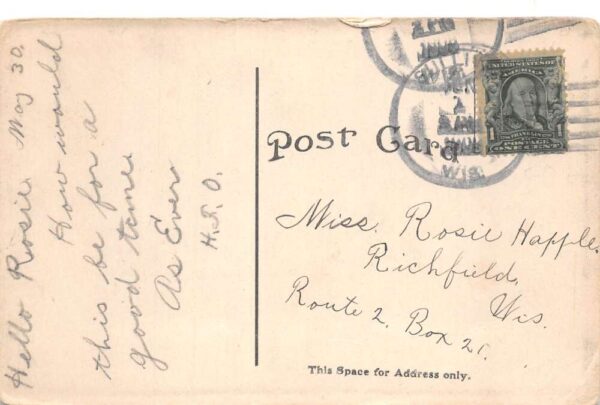 Hello Rosie May 30.
How would
this be for a
good time
As Ever
H.S.O.
Post Card
WIS.
UNITED STATES OF AMERICA
FRANKLIN
1 1
POSTAGE
ONE CENT
Miss. Rosie Happle.
Richfield,
Wis.
Route 2. Box 21.
This Space for Address only.